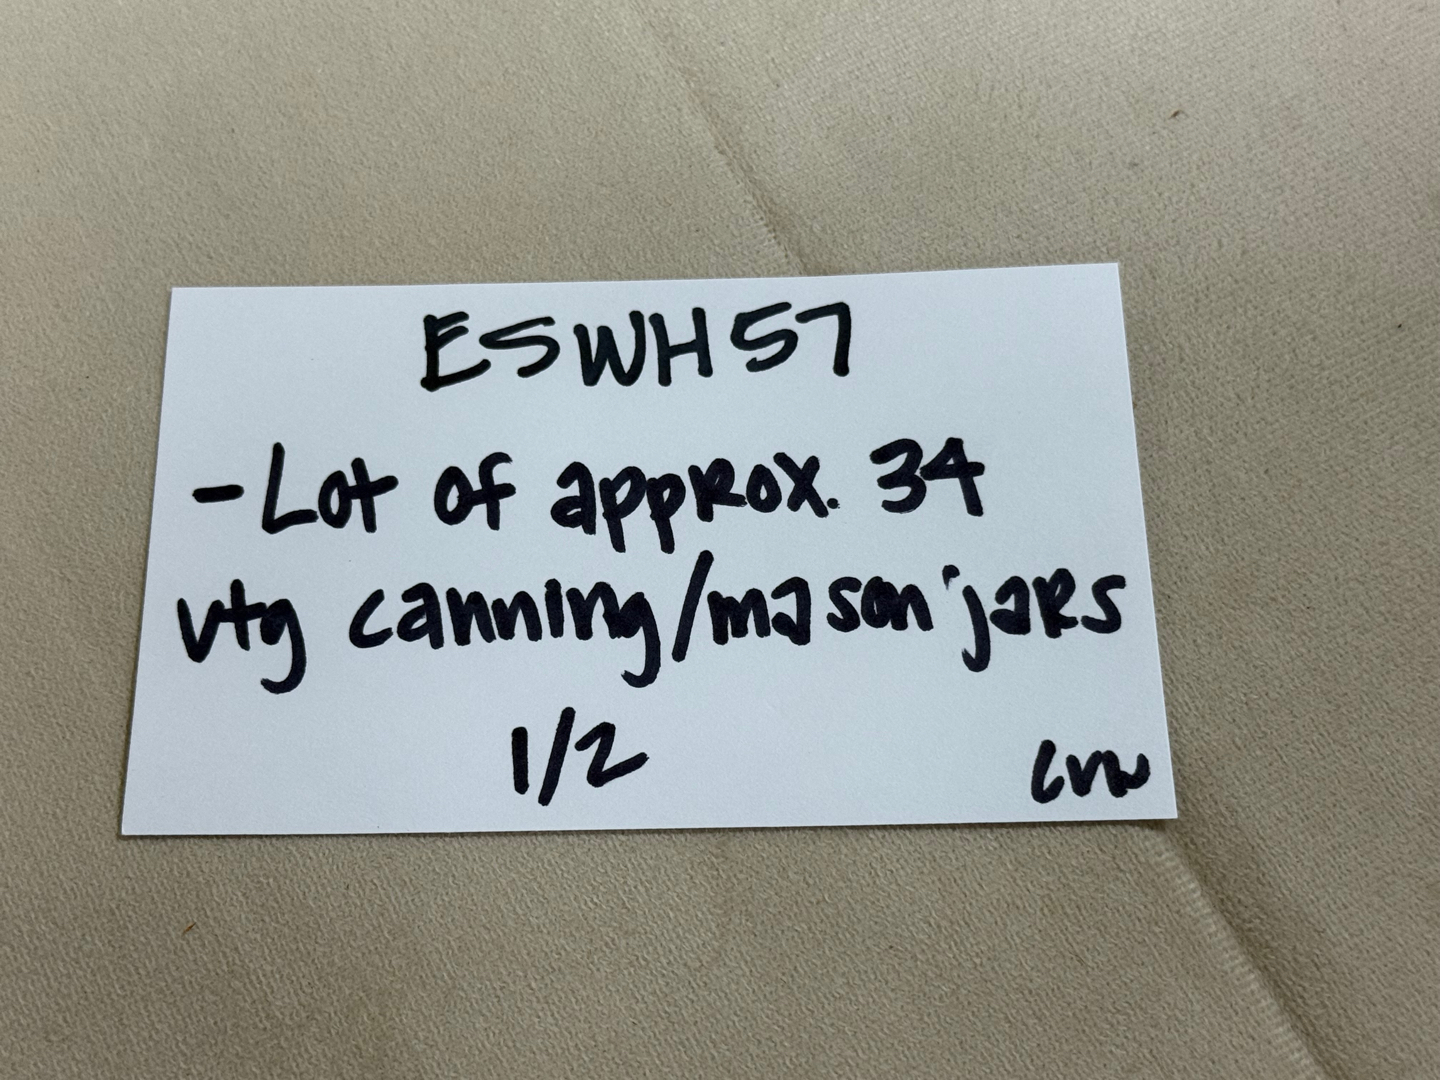 ESWH57
-Lot of approx. 34
vtg canning/mason jars
1/2